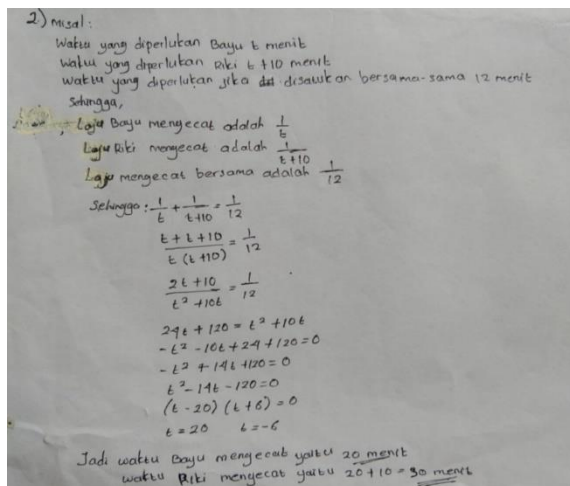 2.) Misal :
Waktu yang diperlukan Bayu t menit
Waktu yang diperlukan Riki t + 10 menit
Waktu yang diperlukan jika disatukan bersama-sama 12 menit
Sehingga,
Laju Bayu mengecat adalah 1/t
Laju Riki mengecat adalah 1/(t+10)
Laju mengecat bersama adalah 1/12
Sehingga : 1/t + 1/(t+10) = 1/12
(t + t + 10)/(t (t +10)) = 1/12
(2t + 10)/(t² + 10t) = 1/12
24t + 120 = t² + 10t
-t² - 10t + 24 + 120 = 0
-t² + 14t + 120 = 0
t² - 14t - 120 = 0
(t - 20) (t + 6) = 0
t = 20 t = -6
Jadi waktu Bayu mengecat yaitu 20 menit
waktu Riki mengecat yaitu 20 + 10 = 30 menit